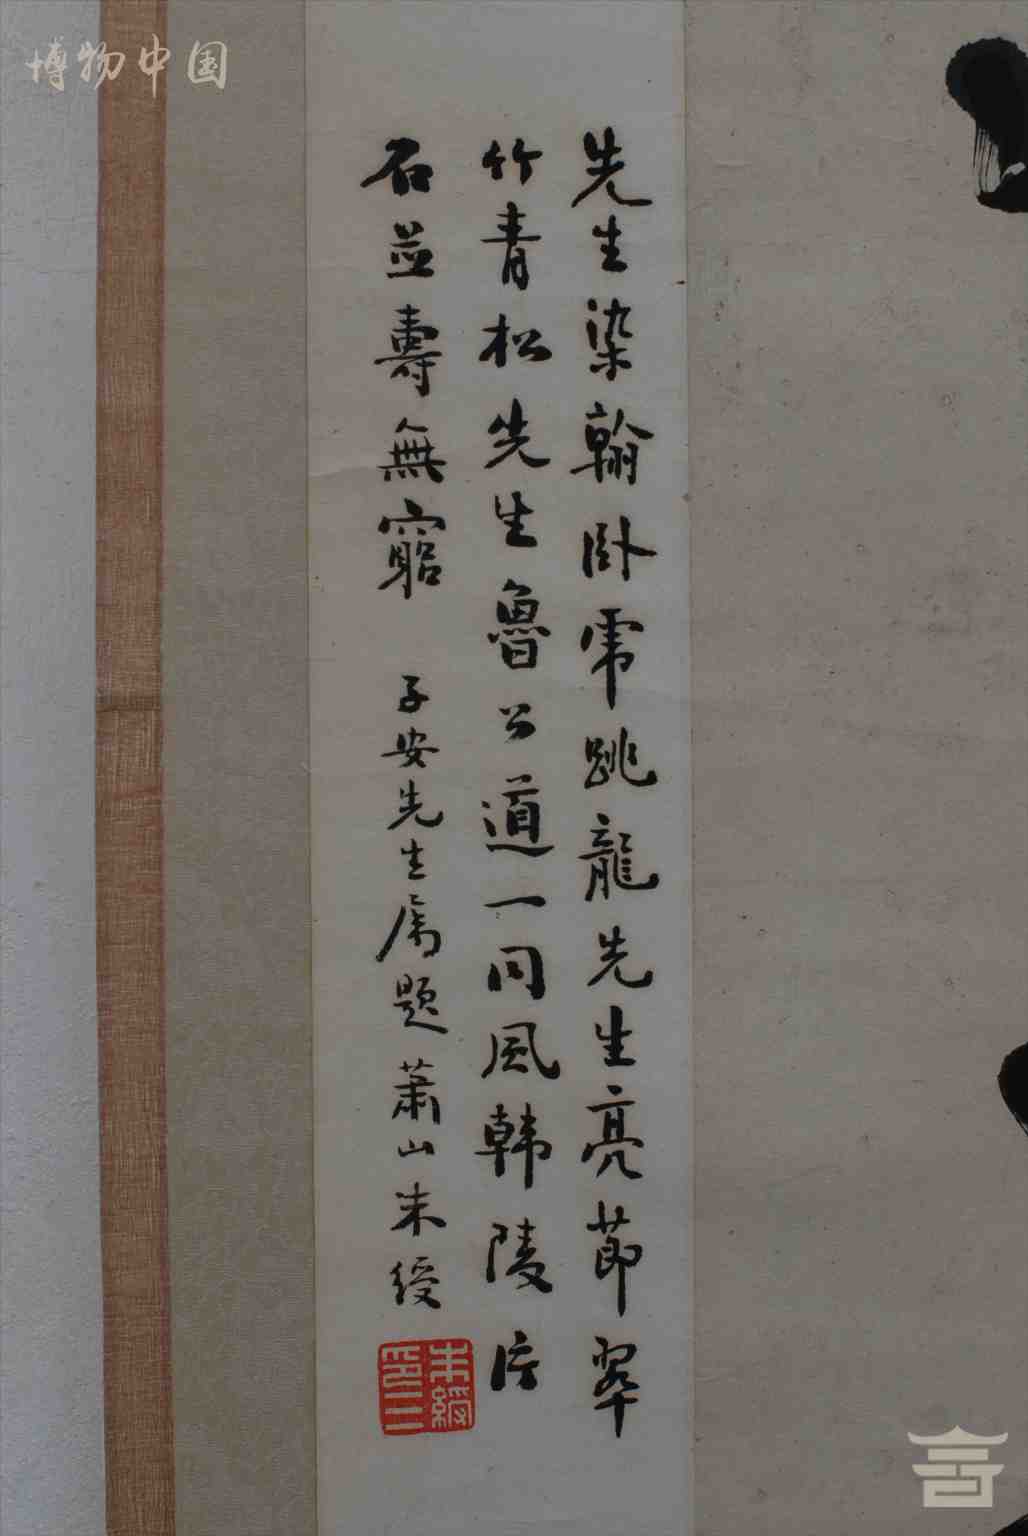 博物中国
先生染翰卧虎跳龍先生亮節翠
竹青松先生魯公道一同風韩陵片
石並壽無窮 子安先生属题 蕭山朱綬
朱綬印